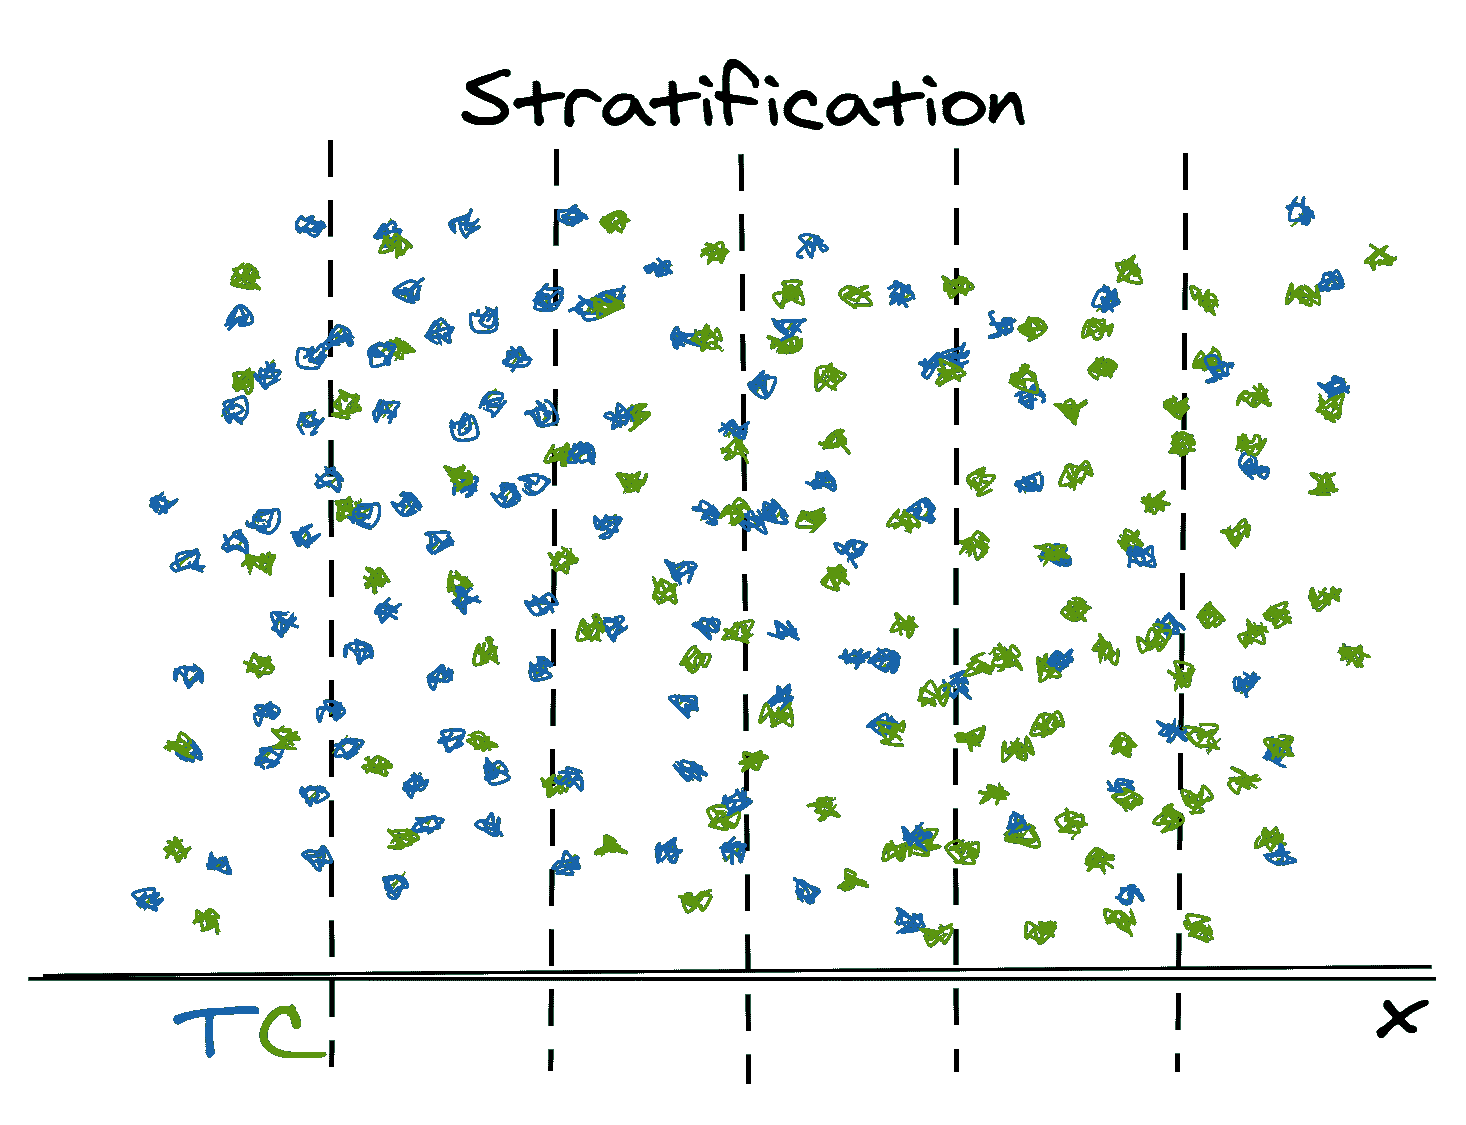 Stratification
TC x